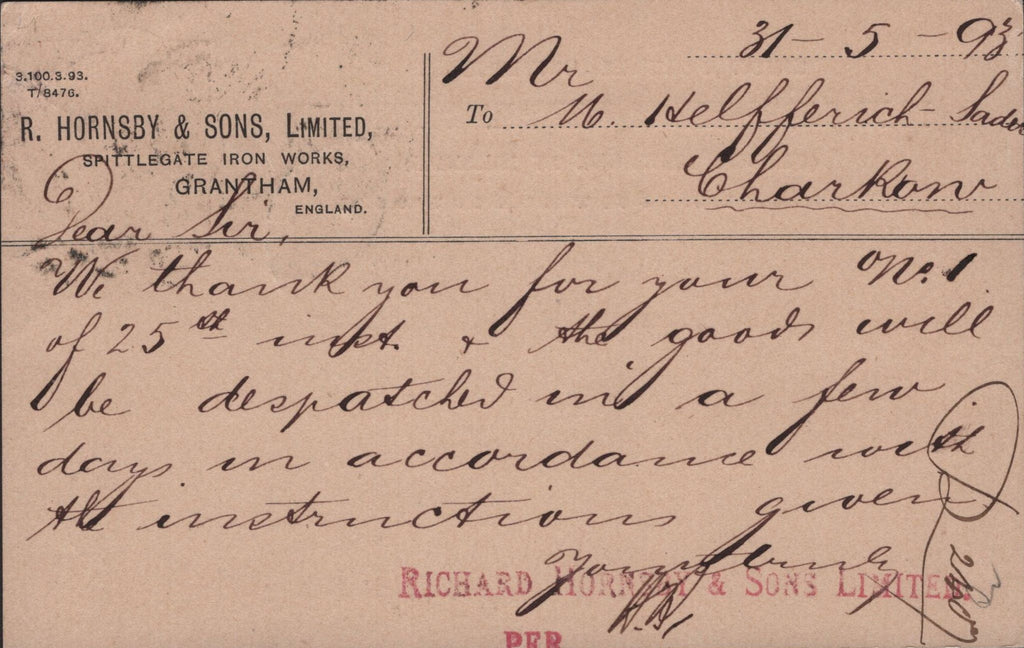 3.100.3.93.
T/8476.
R. HORNSBY & SONS, LIMITED,
SPITTLEGATE IRON WORKS,
GRANTHAM,
ENGLAND.
31 - 5 - 93
Mr
To M. Helfferich-Sade
Charkow
Dear Sir,
We thank you for your No. 1
of 25th inst. & the goods will
be despatched in a few
days in accordance with
the instructions given
Yours truly
RICHARD HORNSBY & SONS LIMITED.
PER